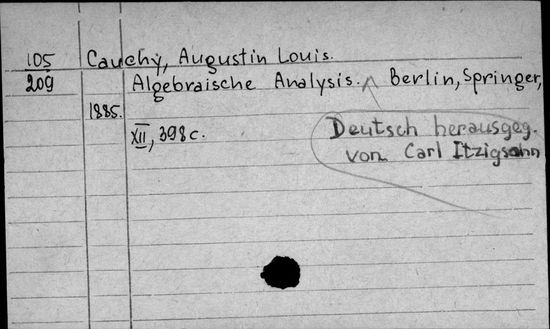 105 Cauchy, Augustin Louis.
209 Algebraische Analysis. Berlin, Springer,
1885.
XII, 398 c.
Deutsch herausgeg.
von Carl Itzigsohn